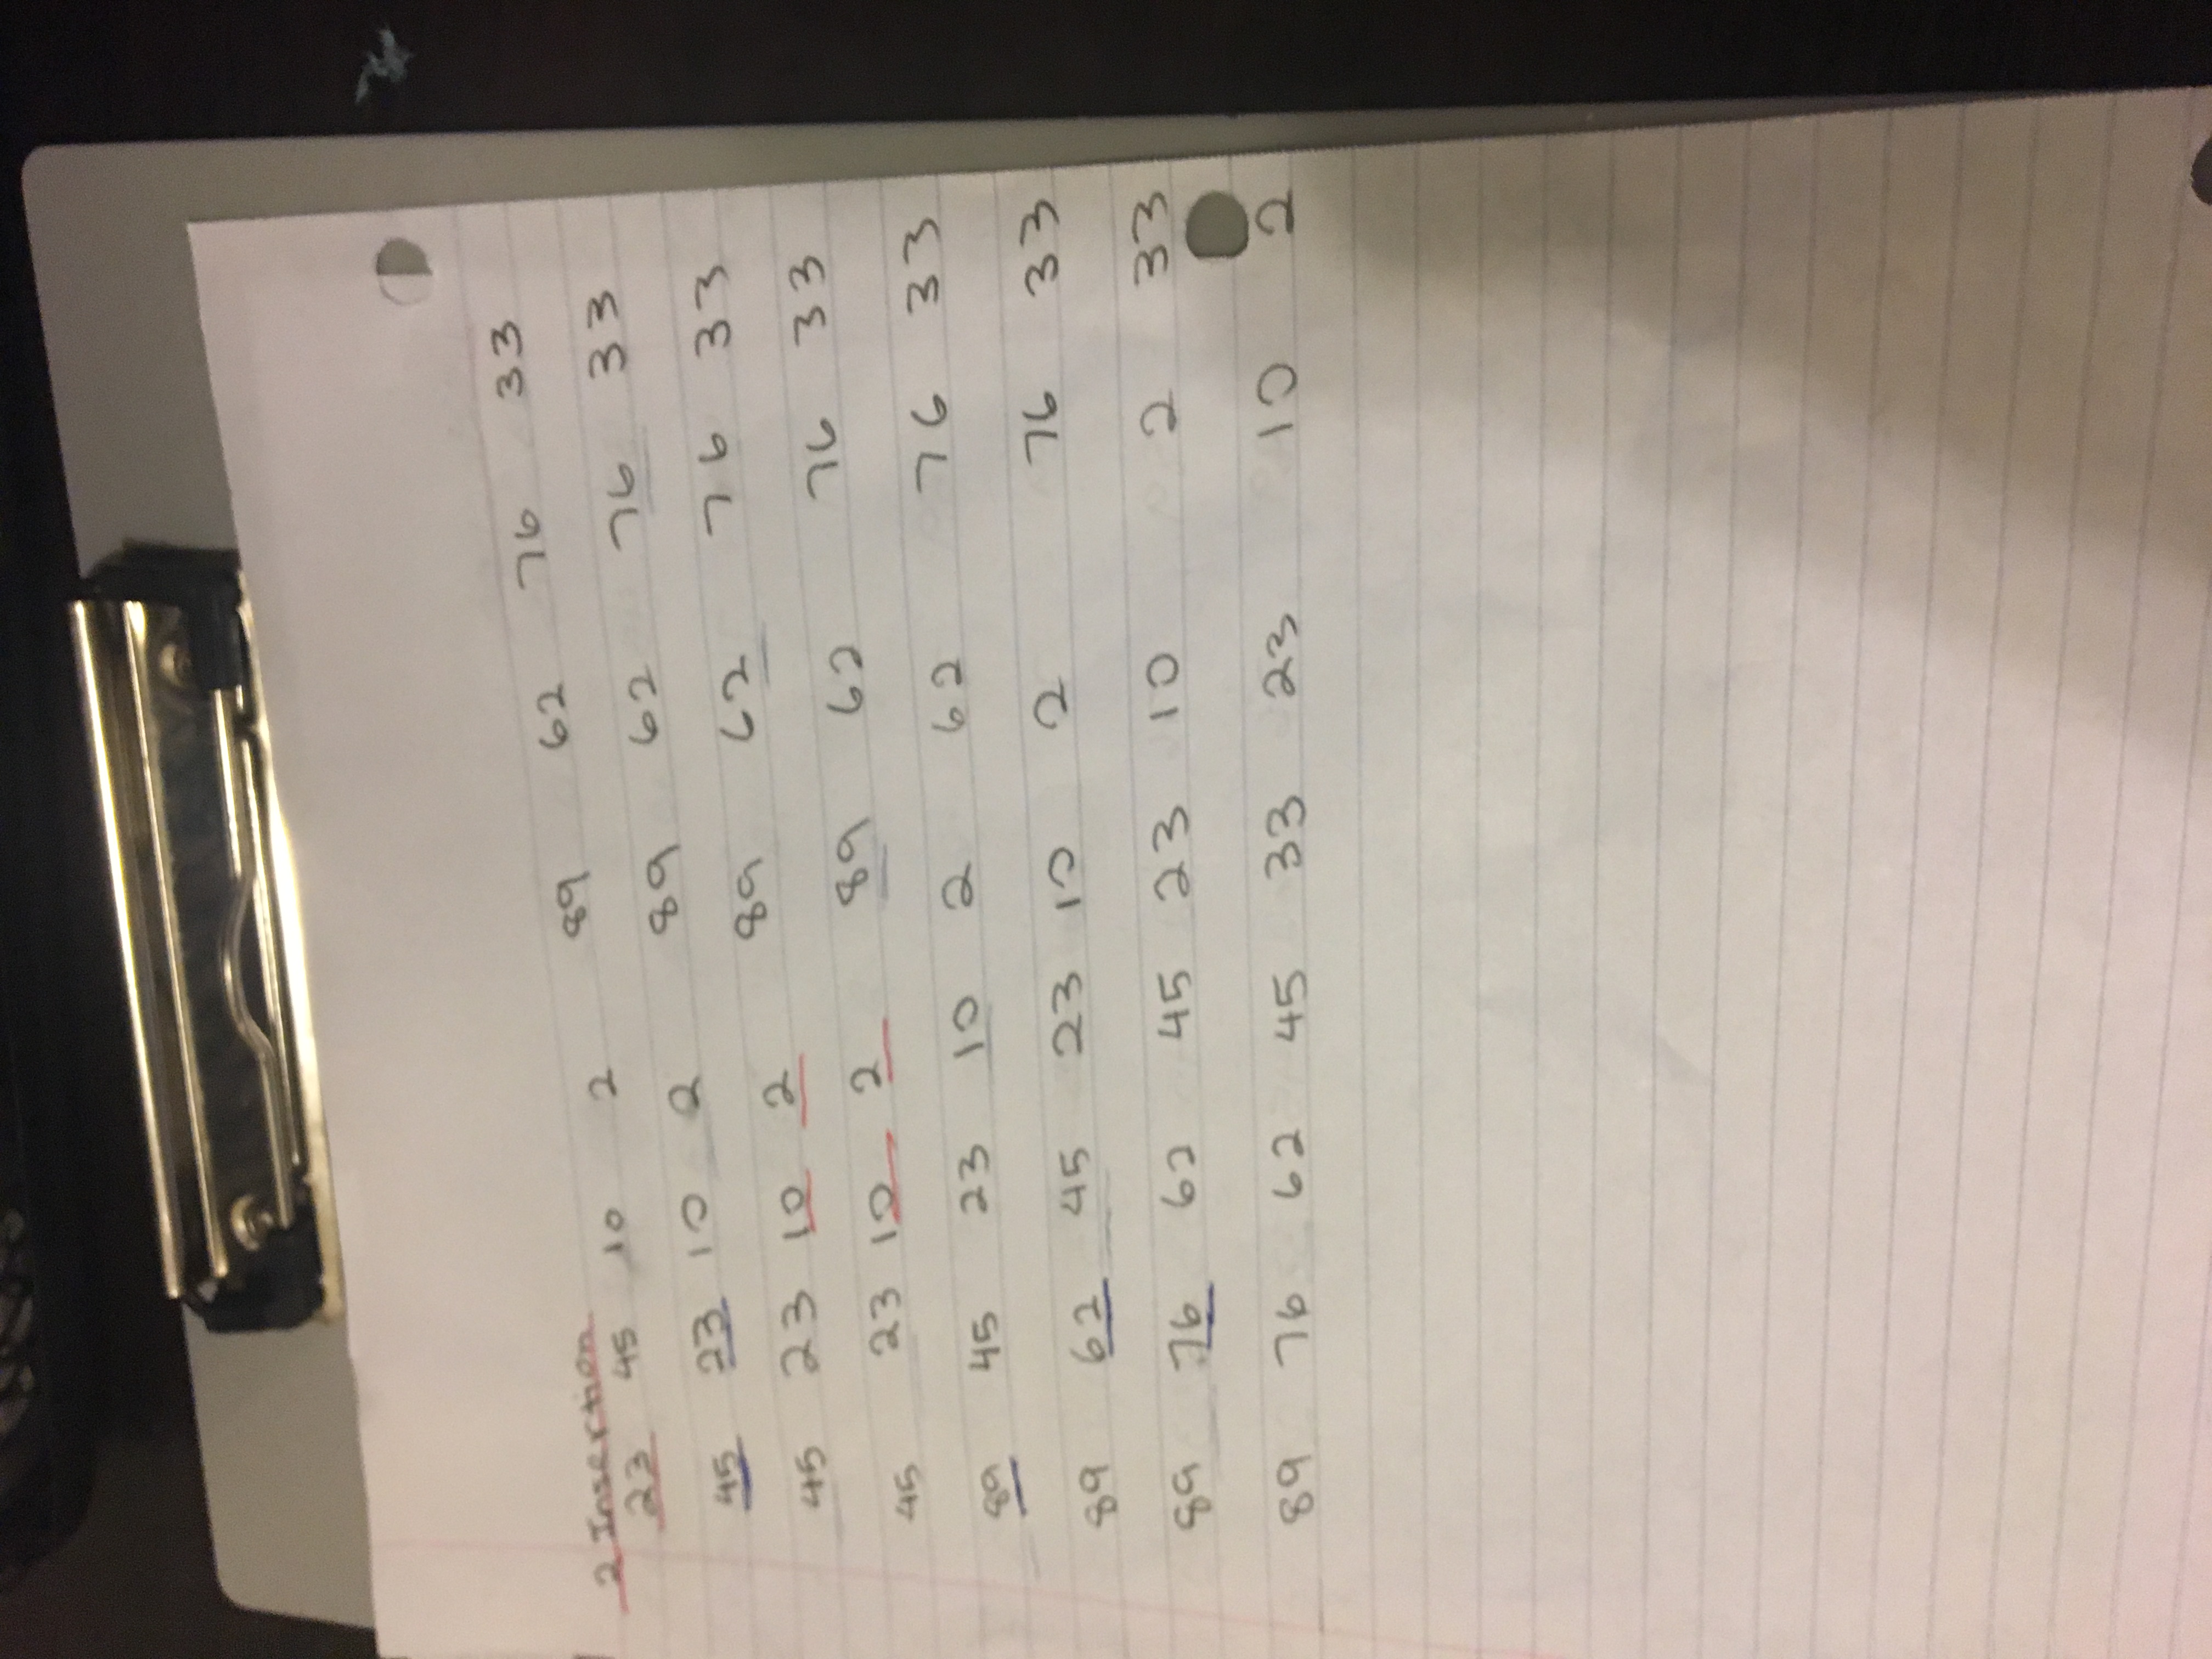 2 Insertion
23 45 10 2 89 62 76 33
45 23 10 2 89 62 76 33
45 23 10 2 89 62 76 33
45 23 10 2 89 62 76 33
89 45 23 10 2 62 76 33
89 62 45 23 10 2 76 33
89 76 62 45 23 10 2 33
89 76 62 45 33 23 10 2